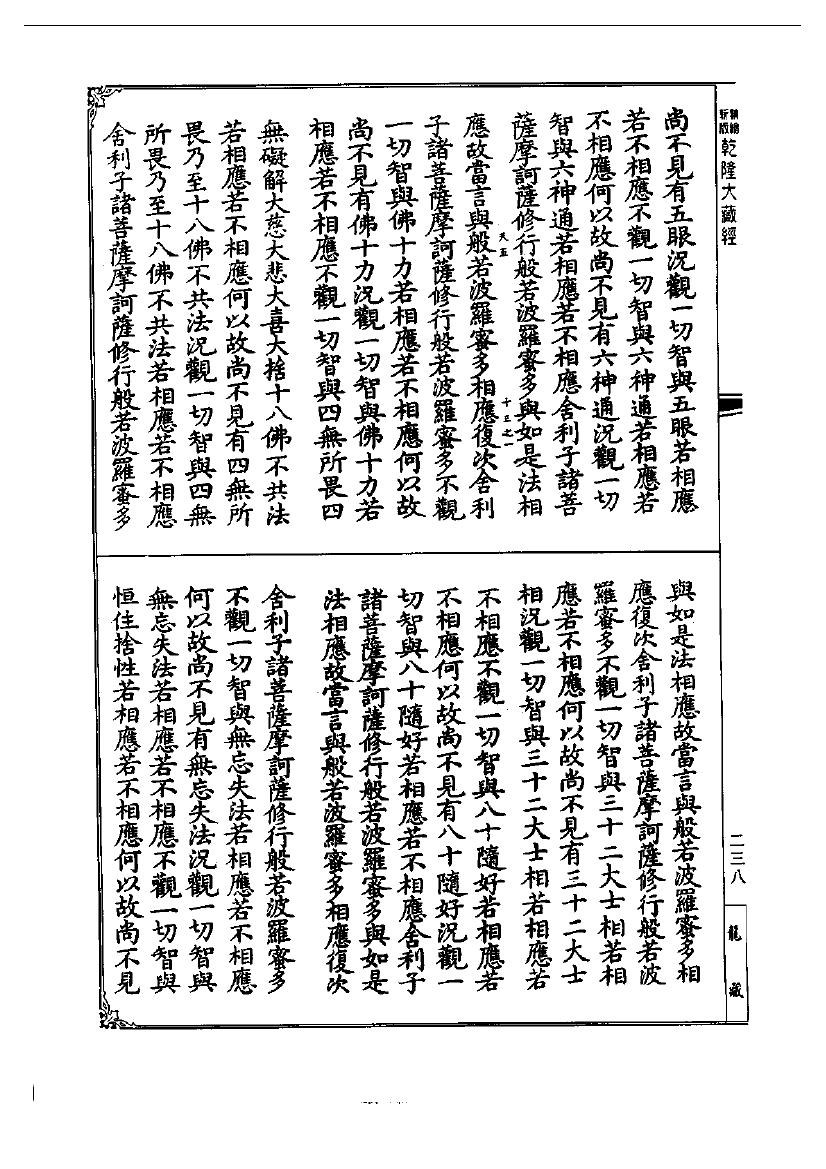 乾隆大藏經
尚不見有五眼況觀一切智與五眼若相應
若不相應不觀一切智與六神通若相應若
不相應何以故尚不見有六神通況觀一切
智與六神通若相應若不相應舍利子諸菩
薩摩訶薩修行般若波羅蜜多與如是法相
天五
十三之一
應故當言與般若波羅蜜多相應復次舍利
子諸菩薩摩訶薩修行般若波羅蜜多不觀
一切智與佛十力若相應若不相應何以故
尚不見有佛十力況觀一切智與佛十力若
相應若不相應不觀一切智與四無所畏四
無礙解大慈大悲大喜大捨十八佛不共法
若相應若不相應何以故尚不見有四無所
畏乃至十八佛不共法況觀一切智與四無
所畏乃至十八佛不共法若相應若不相應
舍利子諸菩薩摩訶薩修行般若波羅蜜多
與如是法相應故當言與般若波羅蜜多相
應復次舍利子諸菩薩摩訶薩修行般若波
羅蜜多不觀一切智與三十二大士相若相
應若不相應何以故尚不見有三十二大士
相況觀一切智與三十二大士相若相應若
不相應不觀一切智與八十隨好若相應若
不相應何以故尚不見有八十隨好況觀一
切智與八十隨好若相應若不相應舍利子
諸菩薩摩訶薩修行般若波羅蜜多與如是
法相應故當言與般若波羅蜜多相應復次
舍利子諸菩薩摩訶薩修行般若波羅蜜多
不觀一切智與無忘失法若相應若不相應
何以故尚不見有無忘失法況觀一切智與
無忘失法若相應若不相應不觀一切智與
恒住捨性若相應若不相應何以故尚不見
二三八
龍藏